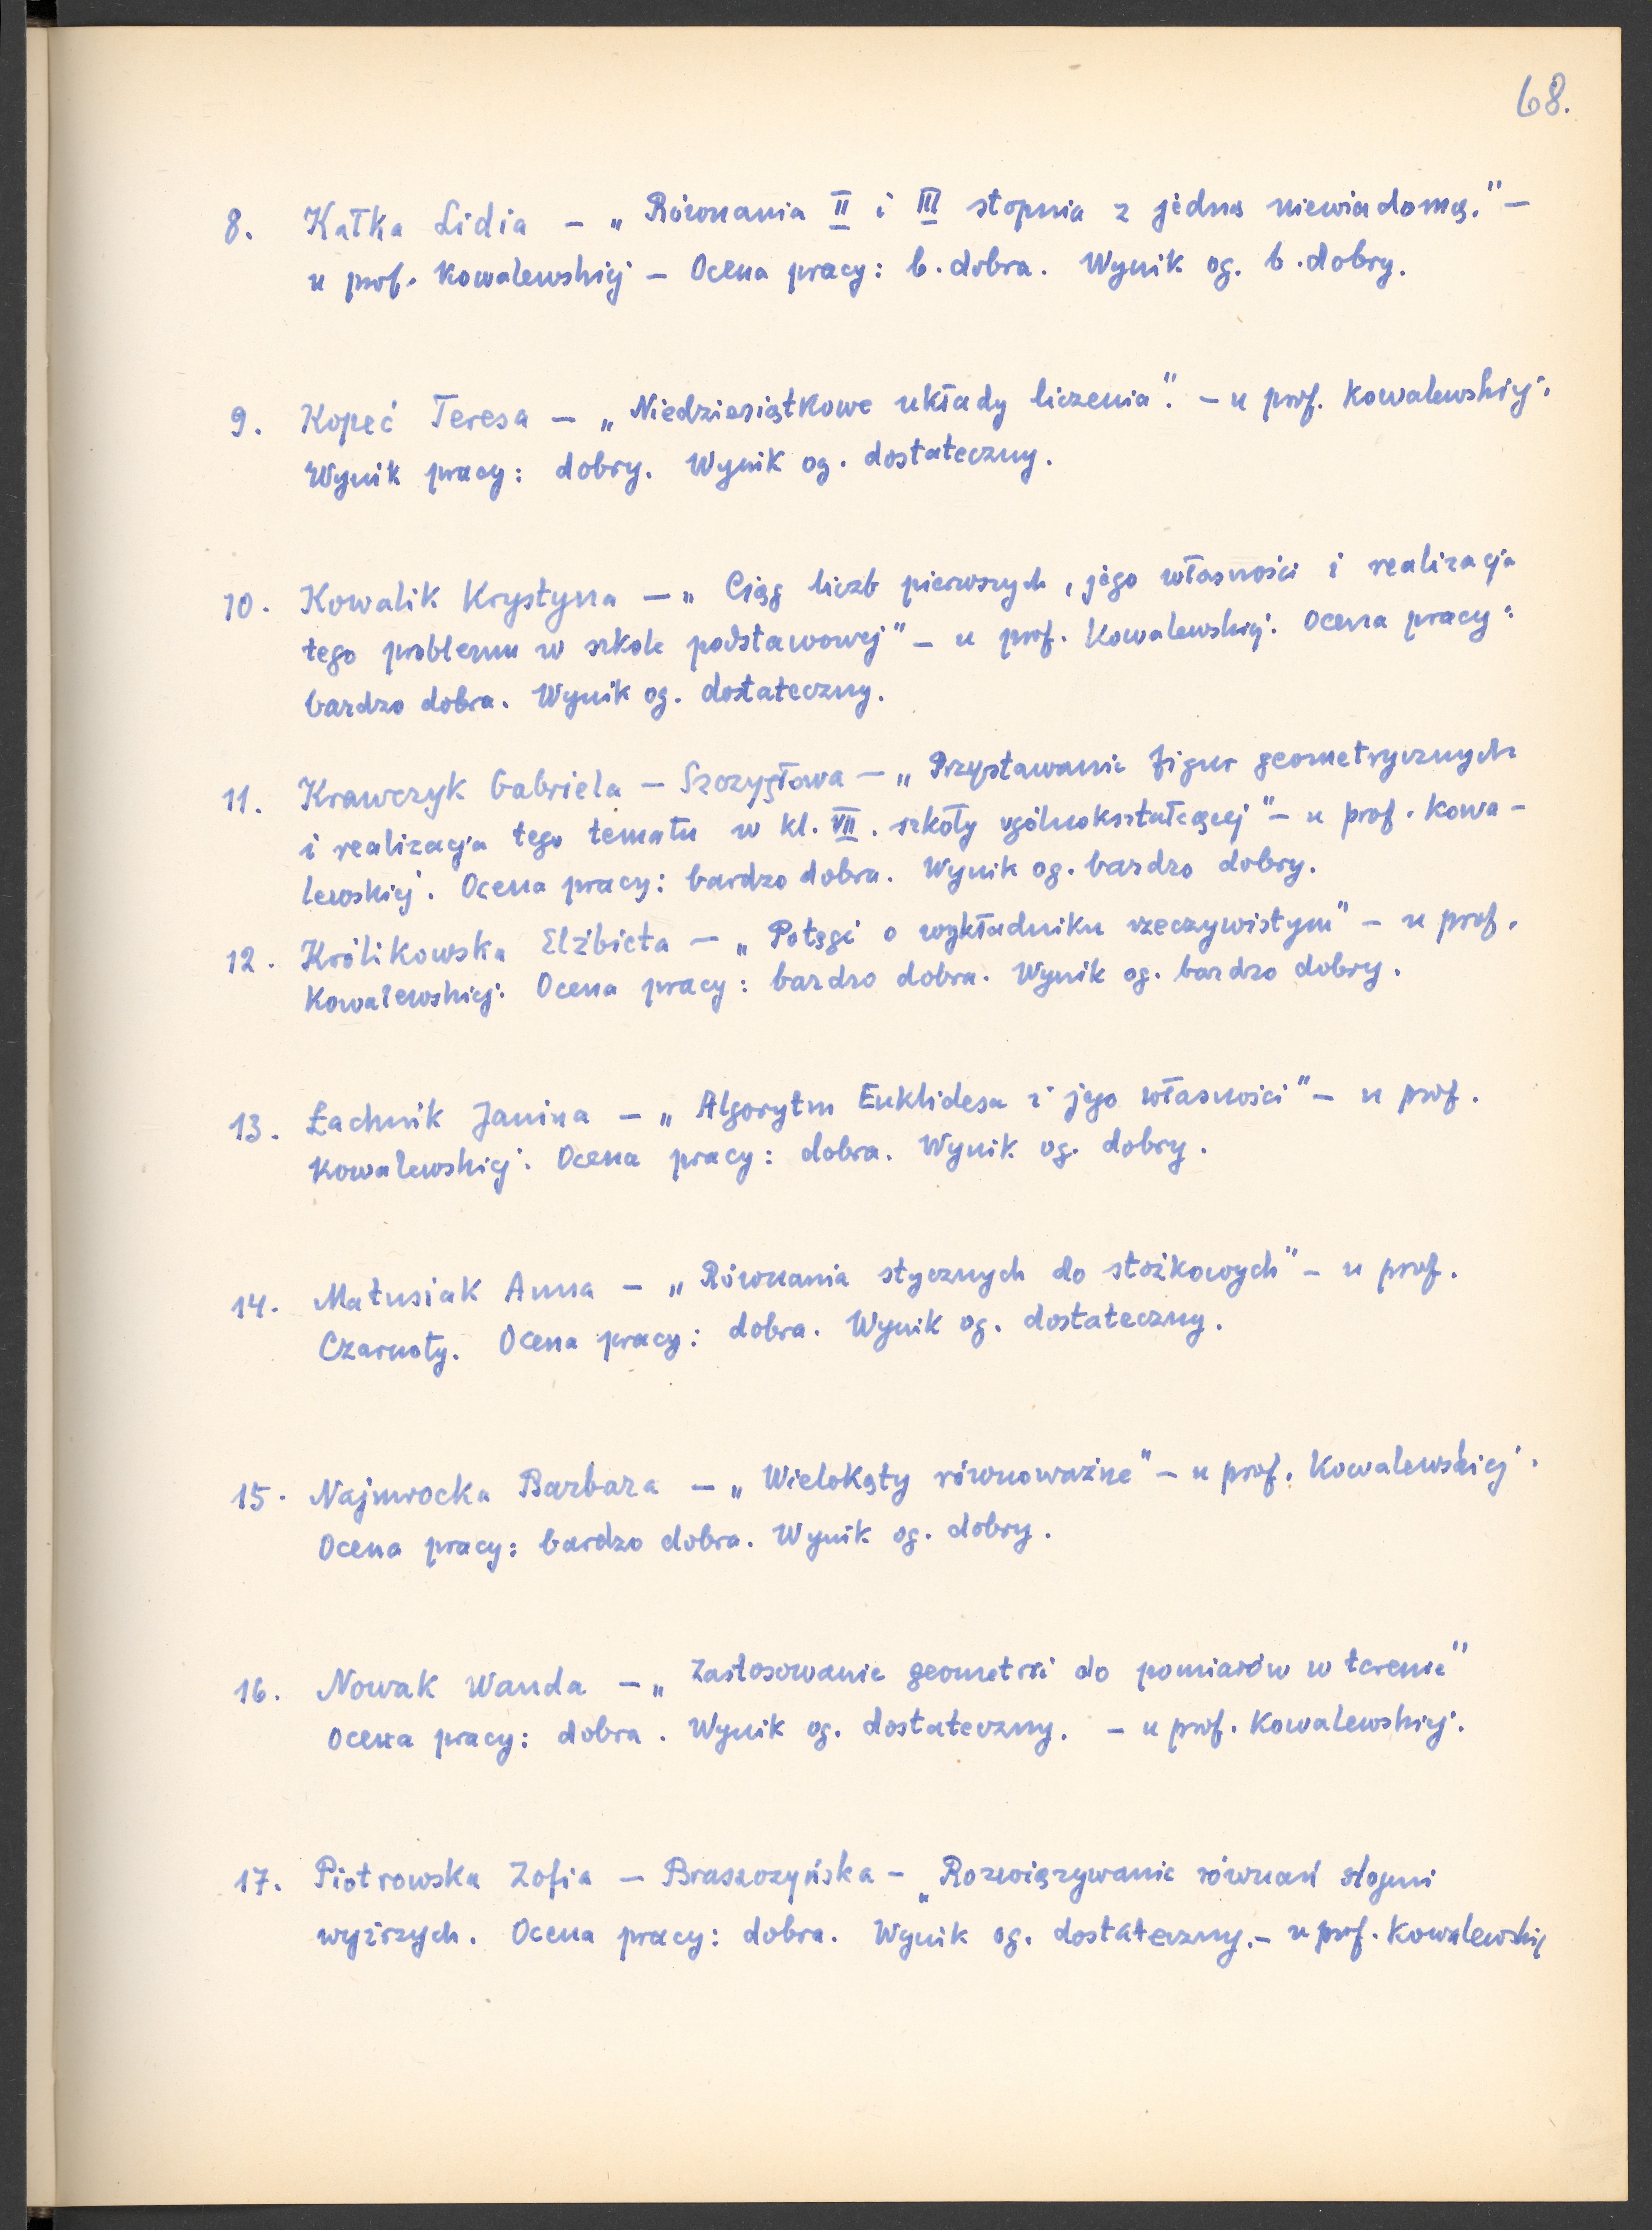 68.
8. Kałka Lidia – „Równania II i III stopnia z jedną niewiadomą." –
u prof. Kowalewskiej – Ocena pracy: b. dobra. Wynik og. b. dobry.
9. Kopeć Teresa – „Niedziesiątkowe układy liczenia". – u prof. Kowalewskiej.
Wynik pracy: dobry. Wynik og. dostateczny.
10. Kowalik Krystyna – „Ciąg liczb pierwszych, jego własności i realizacja
tego problemu w szkole podstawowej" – u prof. Kowalewskiej. Ocena pracy:
bardzo dobra. Wynik og. dostateczny.
11. Krawczyk Gabriela – Szczygłowa – „Przystawanie figur geometrycznych
i realizacja tego tematu w kl. VII. szkoły ogólnokształcącej" – u prof. Kowa-
lewskiej. Ocena pracy: bardzo dobra. Wynik og. bardzo dobry.
12. Królikowska Elżbieta – „Potęgi o wykładniku rzeczywistym" – u prof.
Kowalewskiej. Ocena pracy: bardzo dobra. Wynik og. bardzo dobry.
13. Łachnik Janina – „Algorytm Euklidesa i jego własności" – u prof.
Kowalewskiej. Ocena pracy: dobra. Wynik og. dobry.
14. Matusiak Anna – „Równania stycznych do stożkowych" – u prof.
Czarnoty. Ocena pracy: dobra. Wynik og. dostateczny.
15. Najmrocka Barbara – „Wielokąty równoważne" – u prof. Kowalewskiej.
Ocena pracy: bardzo dobra. Wynik og. dobry.
16. Nowak Wanda – „Zastosowanie geometrii do pomiarów w terenie"
Ocena pracy: dobra. Wynik og. dostateczny. – u prof. Kowalewskiej.
17. Piotrowska Zofia – Braszczyńska – „Rozwiązywanie równań stopni
wyższych. Ocena pracy: dobra. Wynik og. dostateczny. – u prof. Kowalewskiej